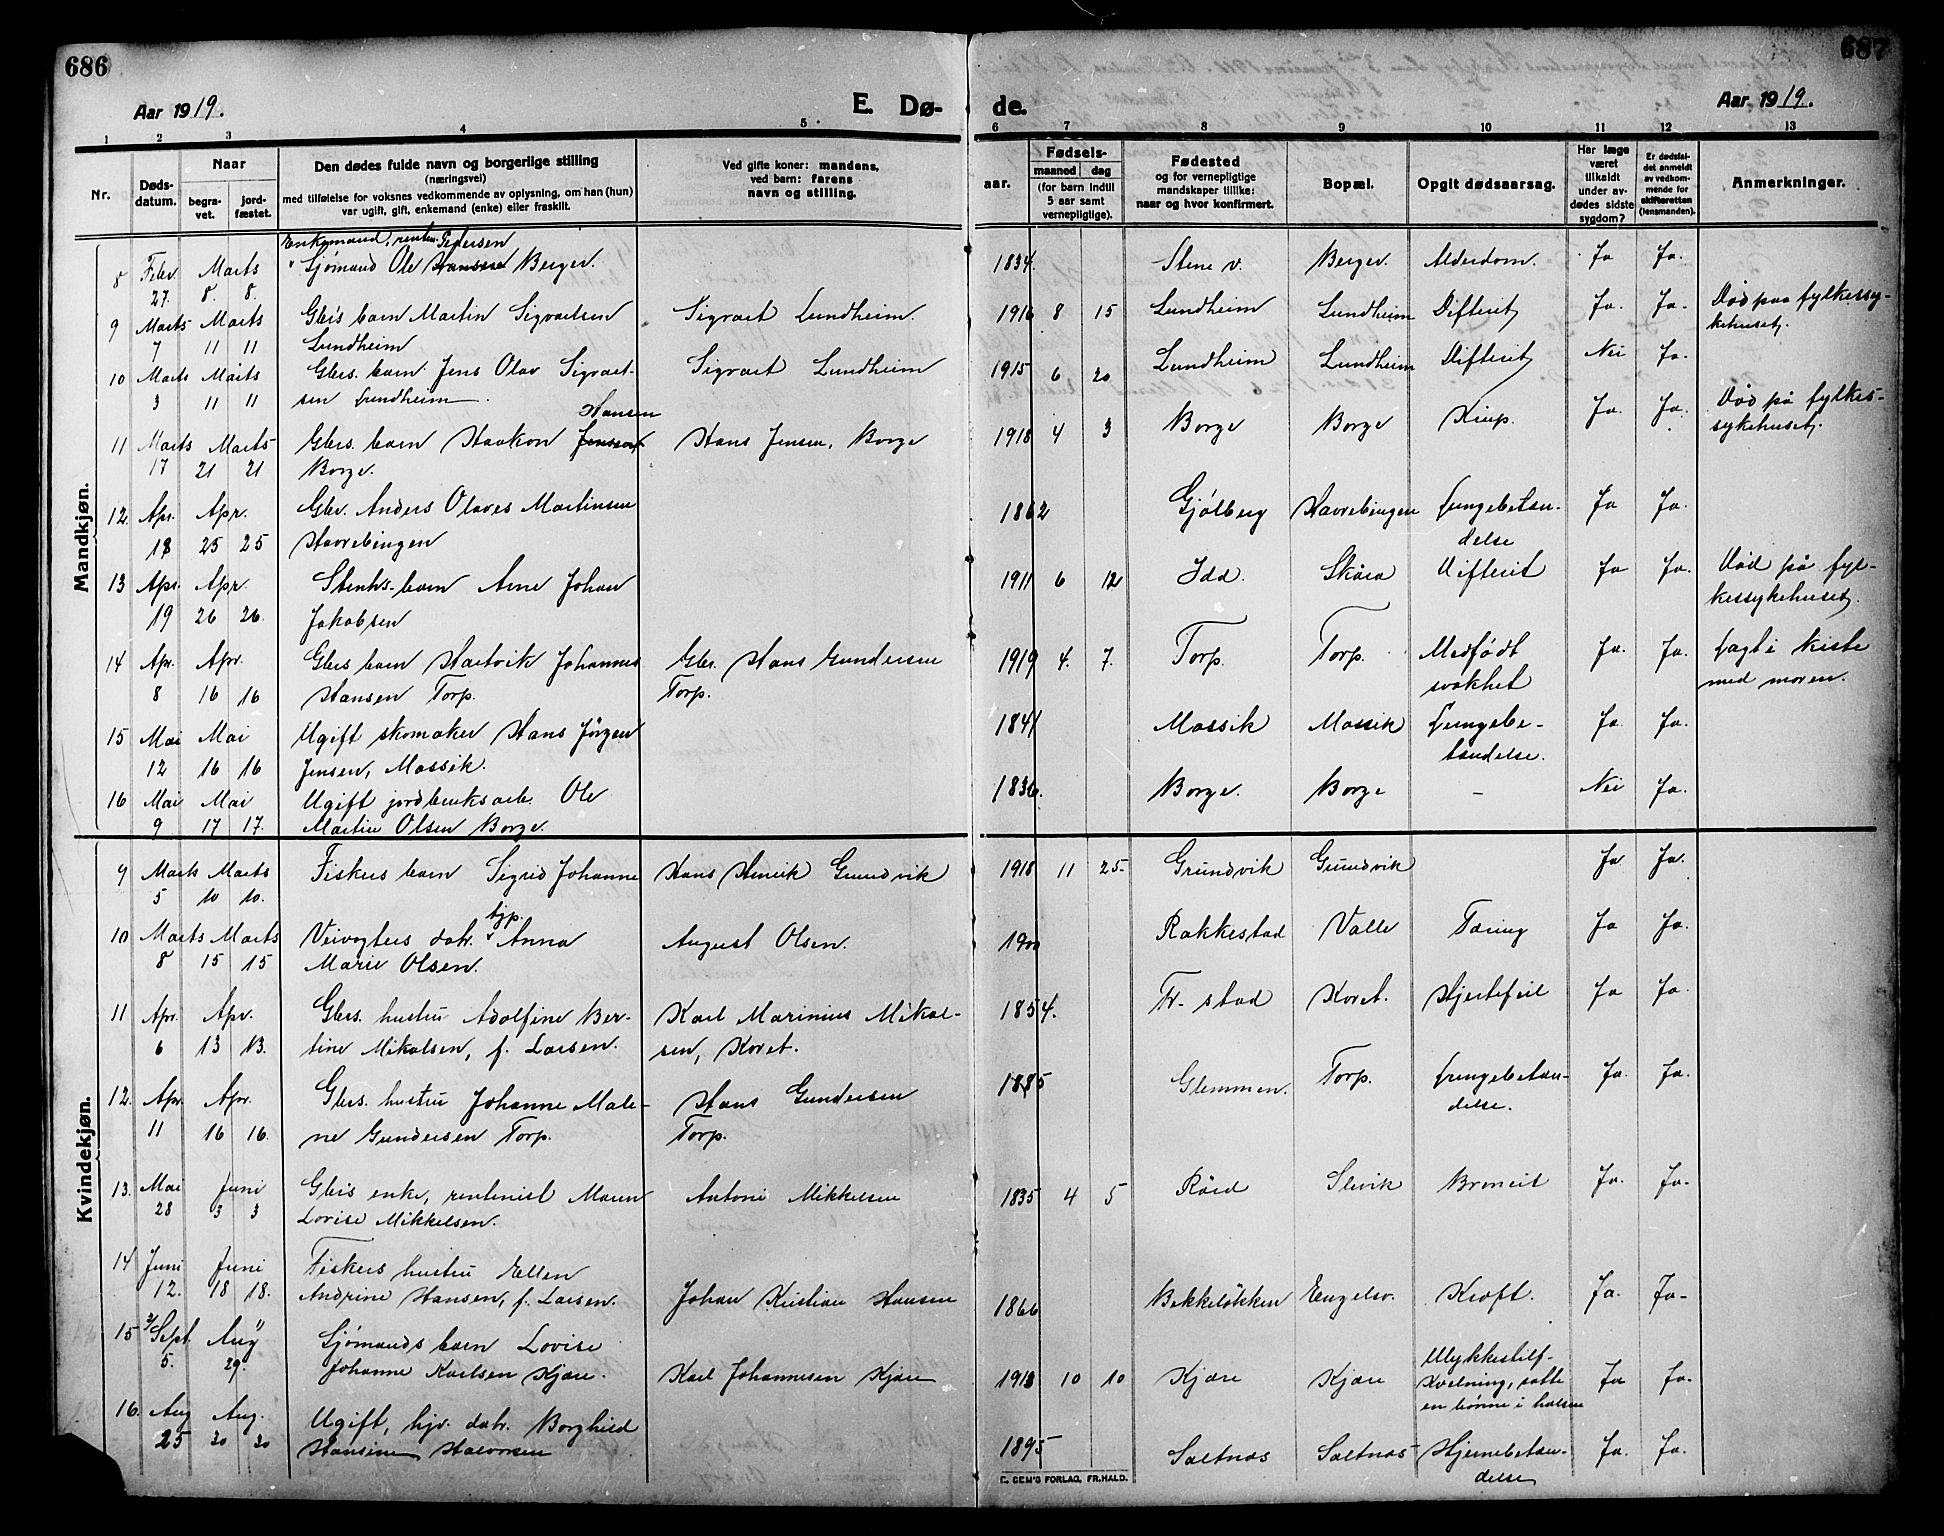 686
687
Aar 1919.
E. Dø-
de.
Aar 1919.
1 2 3 4 5 6 7 8 9 10 11 12 13
Nr.
Døds-
datum.
Naar
begra-
vet.
jord-
fæstet.
Den dødes fulde navn og borgerlige stilling
(næringsvei)
med tilføielse for voksnes vedkommende av oplysning, om han (hun)
var ugift, gift, enkemand (enke) eller fraskilt.
Ved gifte koner: mandens,
ved barn: farens
navn og stilling.
Fødsels-
aar.
maaned dag
(for barn indtil
5 aar samt
vernepligtige).
Fødested
og for vernepligtige
mandskaper tillike:
naar og hvor konfirmert.
Bopæl.
Opgit dødsaarsag.
Har læge
været
tilkaldt
under av-
dødes sidste
sygdom?
Er dødsfal-
det anmeldt
av vedkom-
mende for
skifteretten
(lensmanden).
Anmerkninger.
Mandkjøn.
Enkemand, renten. Pedersen
8 Febr. Marts Sjømand Ole Hansen Berger. 1834. Stene v. Berger. Alderdom. Ja Ja.
27. 8. 8.
9 Marts Marts Gbrs barn Martin Sigvartsen Sigvart Lundheim. 1916 8 15 Lundheim Lundheim Difterit Ja. Ja. Død paa fylkessy-
7 11 11 Lundheim kehuset.
10 Marts Marts Gbrs. barn Jens Olav Sigvart- Sigvart Lundheim 1915 6 20 Lundheim Lundheim Difterit Nei Ja.
3 11 11 sen Lundheim.
Hansen
11 Marts Marts Gbrs. barn Haakon Jensen Hans Jensen, Borge 1918 4 3 Borge Borge Krup. Ja. Ja. Død på fylkes-
17 21 21 Borge. sykehuset.
12. Apr. Apr. Gbr. Anders Olaves Martinsen 1862 Gjølberg Havrebingen Lungebetæn- Ja Ja.
18 25 25 Havrebingen delse
13 Apr. Apr. Stenhs. barn Arne Johan 1911 6 12 Idd. Skåra Difterit Ja Ja. Død på fyl-
19 26 26. Jakobsen kessykehuset.
14 Apr. Apr. Gbrs barn Hartvik Johannes Gbr. Hans Gundersen 1919 4. 7. Torp. Torp. Medfødt Ja. Ja. Lagt i kiste
8 16 16 Hansen Torp. Torp. svakhet med moren.
15 Mai Mai Ugift skomaker Hans Jørgen 1841 Mossik Mossik Lungebe- Ja. Ja.
12 16 16 Jensen, Mossik. tændelse.
16 Mai Mai Ugift jordbruksarb. Ole 1836. Borge. Borge – Nei Ja.
9 17 17. Martin Olsen Borge.
Kvindekjøn.
9 Marts Marts Fiskers barn Sigrid Johanne Hans Henrik Grundvik 1918 11 25 Grundvik Grundvik Ja Ja.
5 10 10.
10 Marts Marts Veivogters datr. tjp. Anna August Olsen. 1900 Rakkestad Valle Tæring Ja Ja.
8 15 15 Marie Olsen.
11 Apr. Apr. Gbrs. hustru Adolfine Ber- Karl Marinius Mikal- 1854. Fr-stad Koret. Hjertefeil Ja Ja.
6 13 13. tine Mikalsen, f. Larsen. sen, Koret.
12. Apr. Apr. Gbrs. hustru Johanne Male- Hans Gundersen 1885 Glemmen. Torp. Lungebetæn- Ja. Ja.
11 16 16. ne Gundersen Torp. Torp. delse.
13. Mai Juni Gbrs enke, rentenist Maren Antoni Mikkelsen 1835 4 5 Røed Slevik Bronkit Ja. Ja.
28 3 3 Lovise Mikkelsen.
14 Juni Juni Fiskers hustru Ellen
12. 18 18. Andrine Hansen, f. Larsen. Johan Kristian Hansen 1866 Bekkeløkken Engelsv. Kræft. Ja. Ja
15 Sept. Aug Sjømands barn Lovise
5. 29. Johanne Karlsen Kjære. Karl Johannesen Kjære 1918 10 10 Kjære Kjære Ulykkestilf- Ja Ja.
kvælning, satte
en bønne i halsen
16. Aug Aug. Ugift, hjv. datr. Borghild 1895 Saltnæs Saltnæs Hjernebetæn- Ja. Ja.
25 30 30 Hansine Halvorsen delse
E. SEM'S FORLAG, FR.HALD.